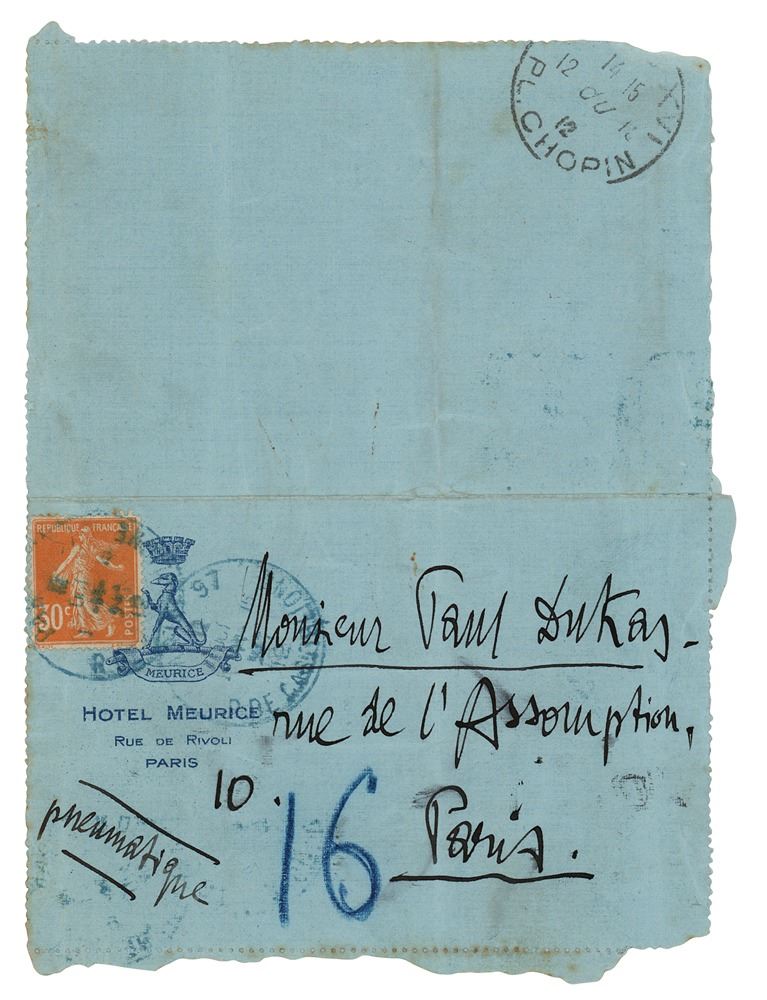 12 14 15
PL. CHOPIN
12
REPUBLIQUE FRANÇAISE
30c
POSTES
97
MEURICE
Monsieur Paul Dukas-
HOTEL MEURICE
rue de l'Assomption,
RUE DE RIVOLI
PARIS
10.
16
Paris.
pneumatique